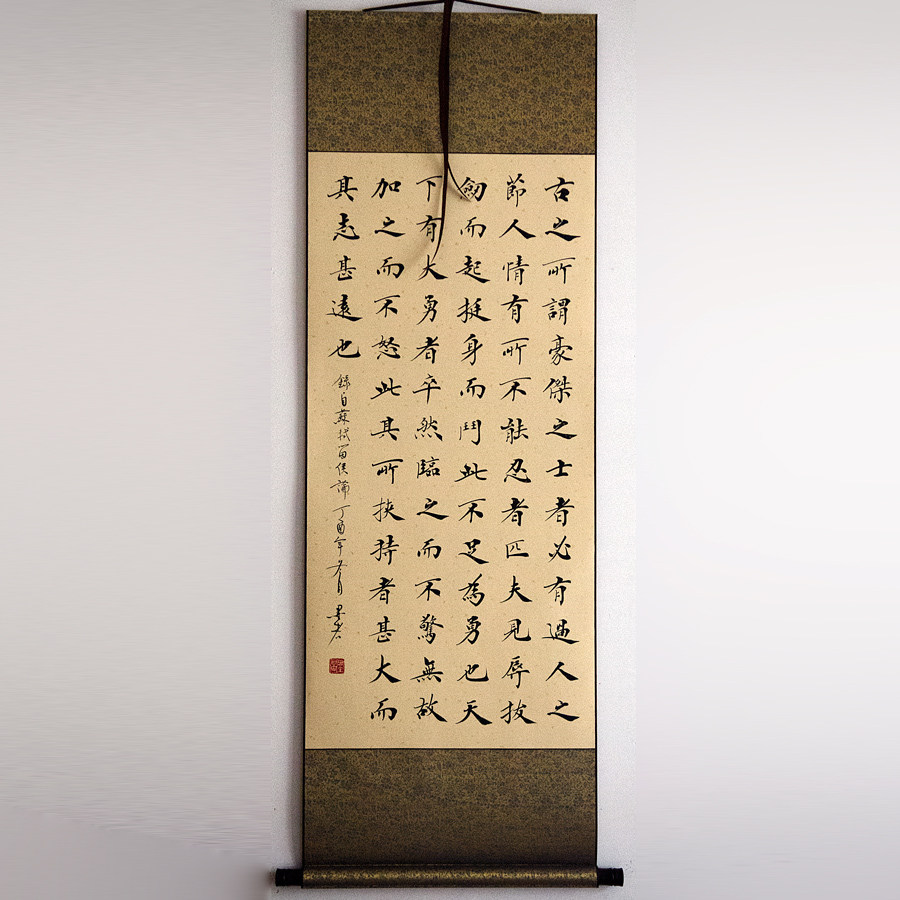 古之所謂豪傑之士者必有過人之
節人情有所不能忍者匹夫見辱拔
劒而起挺身而鬥此不足為勇也天
下有大勇者卒然臨之而不驚無故
加之而不怒此其所挾持者甚大而
其志甚遠也
錄自蘇軾留侯論 丁酉年 月